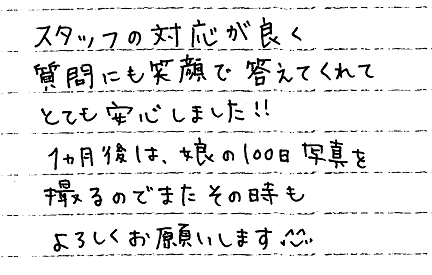 スタッフの対応が良く
質問にも笑顔で答えてくれて
とても安心しました!!
1ヵ月後は、娘の100日写真を
撮るのでまたその時も
よろしくお願いします